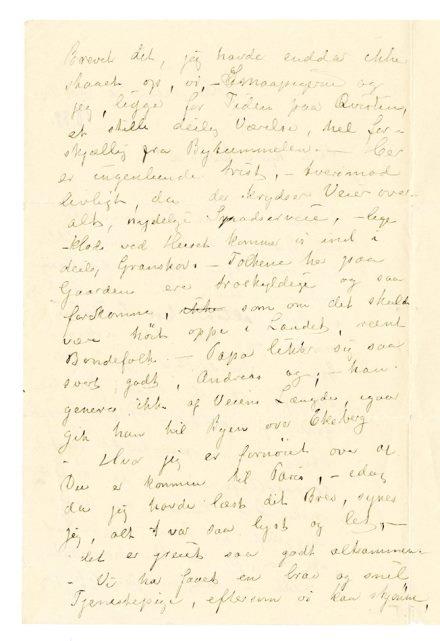 Brevet dit, jeg havde endda ikke
skaaet op, vi, – Smaapigerne og
jeg, ligge for Tiden paa
et stille deilig Værelse, hel for=
skjællig fra Bytummelen. – Her
er ingenlunde trist, – tvertimod
livligt, da der krydser Veier over=
alt, nydelige Spadserveie, –
ved Huset kommer vi ind i
deilig Granskov. – Folkene her paa
Gaarden ere troskyldige og saa
forekomne, ikke som om det skulde
vær høit oppe i Landet, rænt
Bondefolk. – Papa liker sig saa
svært godt, Andreas og, – han
generes ikke af Veiens Længde, igaar
gik han til Byen over Ekeberg
– Hvor jeg er fornöiet over at
Du er kommen til Paris, – idag
da jeg havde læst dit Brev, synes
jeg, alt var saa lyst og let, –
det er greit saa godt altsammen.
– Vi ha faaet en brav og snil
Tjenestepige, eftersom vi kan skjønne,